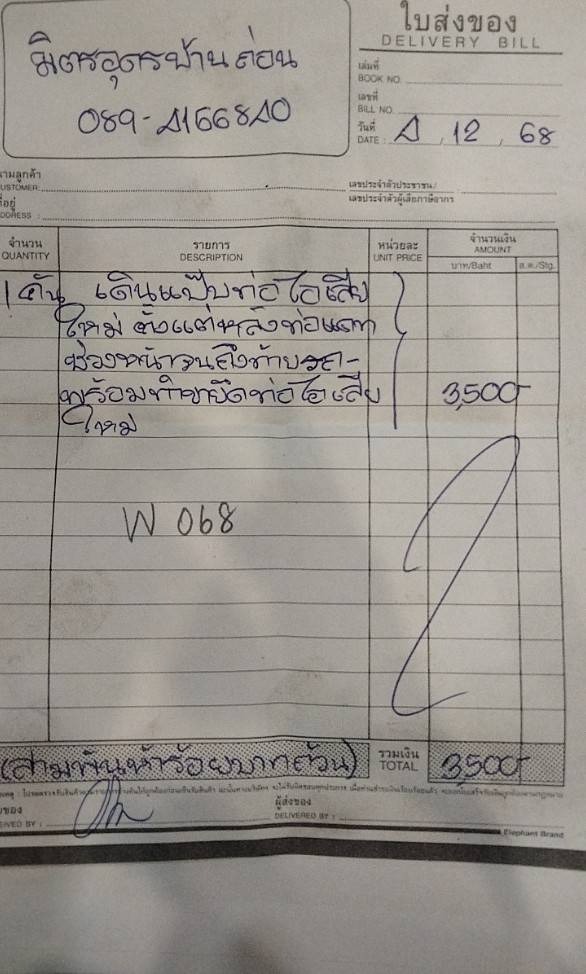 ใบส่งของ
DELIVERY BILL
มิตรอุดรบ้านถ่อน
089-4166840
เล่มที่
BOOK NO.
เลขที่
BILL NO.
วันที่
DATE : 4, 12, 68
นามลูกค้า
CUSTOMER:
เลขประจำตัวประชาชน/
เลขประจำตัวผู้เสียภาษีอากร
ที่อยู่
ADDRESS :
จำนวน รายการ หน่วยละ จำนวนเงิน
QUANTITY DESCRIPTION UNIT PRICE AMOUNT
บาท/Baht ส.ต./Stg.
1 คัน เดินแป๊บท่อไอเสีย
ใหม่ ตั้งแต่หลังท่อแตก
ช่วงหน้าจนถึงท้ายรถ-
พร้อมทำขายึดท่อไอเสีย 3,500-
ใหม่
W 068
(สามพันห้าร้อยบาทถ้วน) รวมเงิน
TOTAL 3500-
ผู้ส่งของ
DELIVERED BY :
Elephant Brand